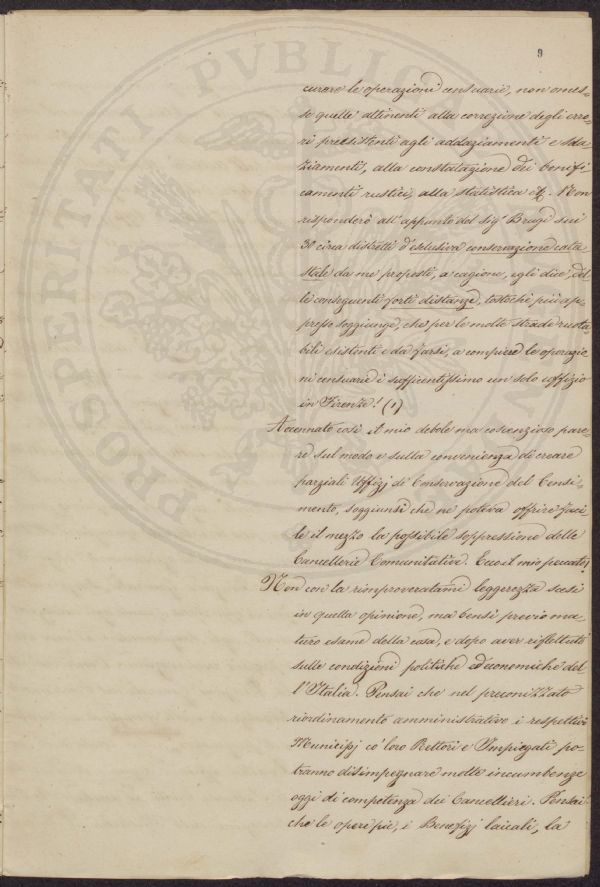 9
curare le operazioni censuarie, non omes-
se quelle attinenti alla correzione degli erro-
ri preesistenti agli addaziamenti e sda-
ziamenti, alla constatazione dei bonifi
camenti rustici, alla statistica &c. Non
risponderò all'appunto del Sig.r Bragi sui
30 circa distretti d'esclusiva conservazione cata
stale da me proposti, a cagione, egli dice, del
le conseguenti forti distanze, tostochè più ap-
presso soggiunge, che per le molte strade ruota
bili esistenti e da farsi, a compiere le operazio
ni censuarie è sufficientissimo un solo uffizio
in Firenze! (1)
Accennato così il mio debole ma coscenzioso pare-
re sul modo e sulla convenienza di creare
parziali Uffizj di Conservazione del Censi-
mento, soggiunsi che ne poteva offrire faci
le il mezzo la possibile soppressione delle
Cancellerie Comunitative. Ecco il mio peccato!
Non con la rimproveratami leggerezza scesi
in quella opinione, ma bensì previo ma-
turo esame della cosa, e dopo aver riflettuto
sulle condizioni politiche ed economiche del-
l'Italia. Pensai che nel preconizzato
riordinamento amministrativo i respettivi
Municipj co' loro Rettori e Impiegati po-
tranno disimpegnare molte incumbenze
oggi di competenza dei Cancellieri. Pensai
che le opere pie, i Benefizj laicali, la
PROSPERITATI PVBLIC